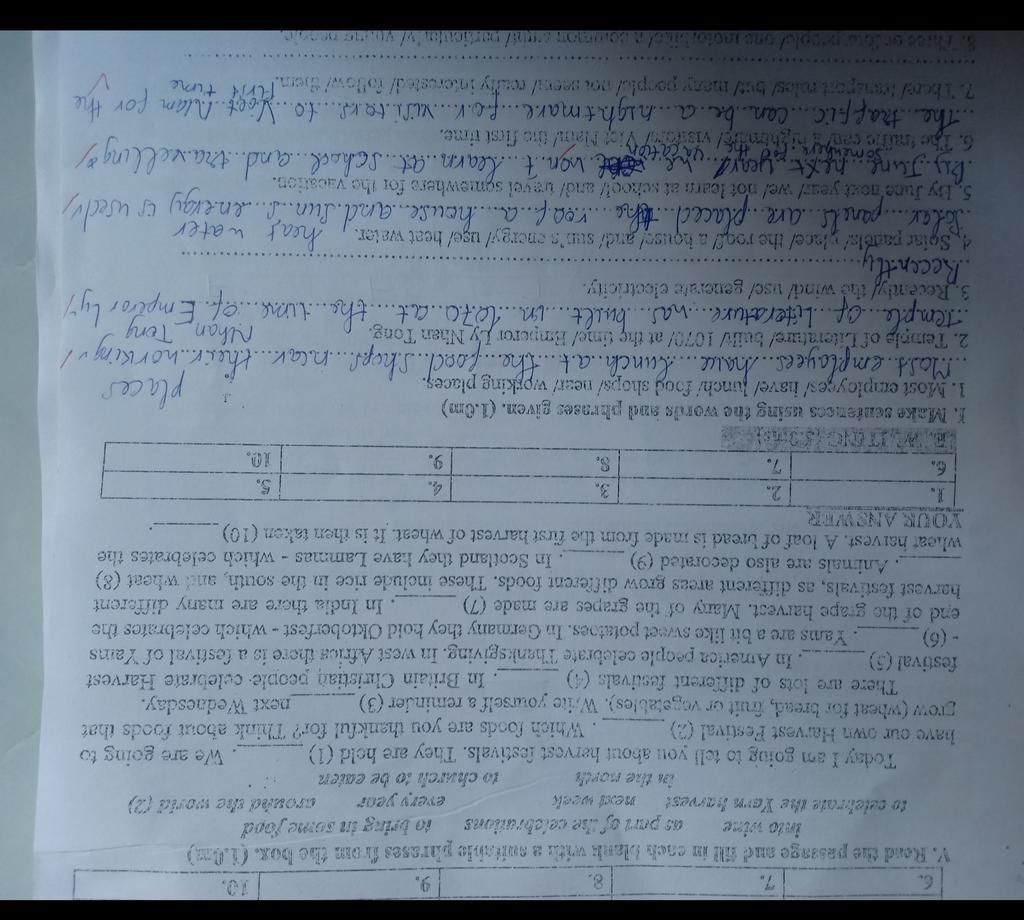 6. 7. 8. 9. 10.
V. Read the passage and fill in each blank with a suitable phrases from the box. (1.0m)
into wine as part of the celebrations to bring in some food
to celebrate the Yam harvest next week every year around the world (2)
in the north to church to be eaten
Today I am going to tell you about harvest festivals. They are held (1) ______. We are going to
have our own Harvest Festival (2) ______. Which foods are you thankful for? Think about foods that
grow (wheat for bread, fruit or vegetables). Write yourself a reminder (3) ______ next Wednesday.
There are lots of different festivals (4) ______. In Britain Christian people celebrate Harvest
festival (5) ______. In America people celebrate Thanksgiving. In west Africa there is a festival of Yams
- (6) ______. Yams are a bit like sweet potatoes. In Germany they hold Oktoberfest - which celebrates the
end of the grape harvest. Many of the grapes are made (7) ______. In India there are many different
harvest festivals, as different areas grow different foods. These include rice in the south, and wheat (8)
______. Animals are also decorated (9) ______. In Scotland they have Lammas - which celebrates the
wheat harvest. A loaf of bread is made from the first harvest of wheat. It is then taken (10) ______.
YOUR ANSWER
1. 2. 3. 4. 5.
6. 7. 8. 9. 10.
E. WRITING
I. Make sentences using the words and phrases given. (1.0m)
1. Most employees/ have/ lunch/ food shops/ near/ working places.
Most employees have lunch at the food shops near their working places
2. Temple of Literature/ build/ 1070/ at the time/ Emperor Ly Nhan Tong.
Temple of Literature was built in 1070 at the time of Emperor Ly Nhan Tong
3. Recently/ the wind/ use/ generate electricity.
Recently
4. Solar panels/ place/ the roof/ a house/ and/ sun's energy/ use/ heat water.
Solar panels are placed the roof a house and sun's energy is used heat water
5. By June next year/ we/ not learn at school/ and/ travel somewhere for the vacation.
By June next year we won't learn at school and travelling somewhere for the vacation
6. The traffic/ can/ a nightmare/ visitors/ Viet Nam/ the first time.
The traffic can be a nightmare for visitors to Viet Nam for the first time
7. There/ transport rules/ but/ many people/ not seem/ really interested/ follow/ them.
8. Three or four people/ one motorbike/ a common sight/ particularly/ young people.